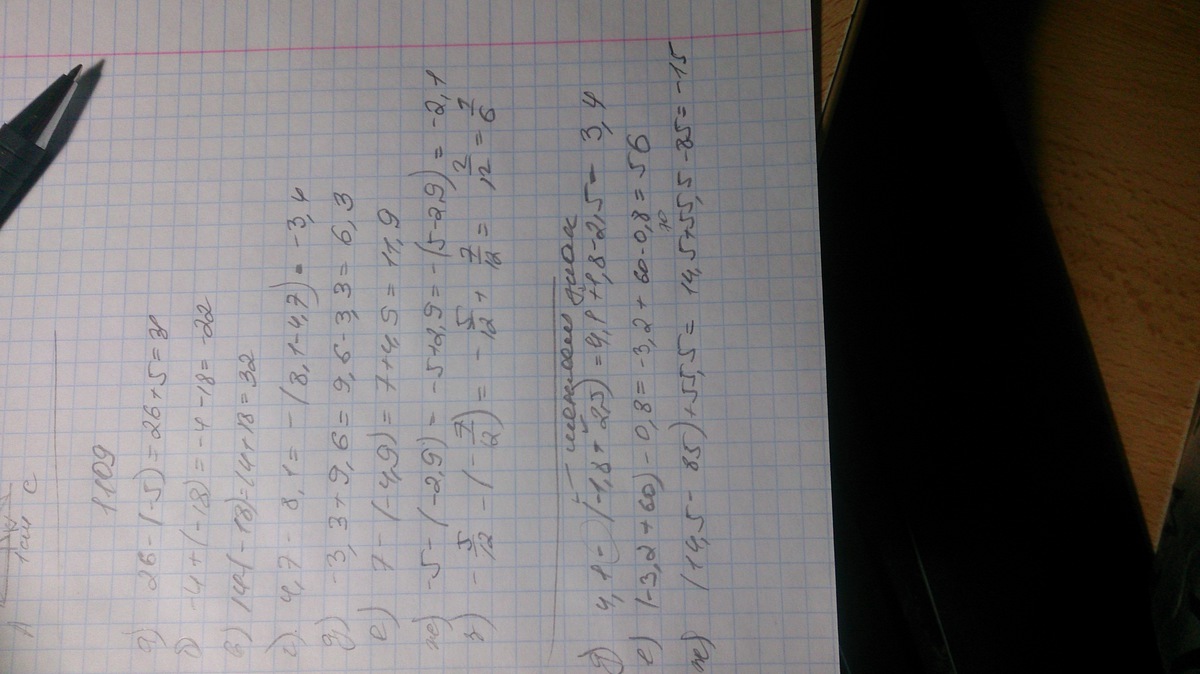 1109
а) 26-(-5)=26+5=31
б) -4+(-18)=-4-18=-22
в) 14-(-18)=14+18=32
г) 4,7-8,1=-(8,1-4,7)=-3,4
д) -3,3+9,6=9,6-3,3=6,3
е) 7-(-4,9)=7+4,9=11,9
ж) -5-(-2,9)=-5+2,9=-(5-2,9)=-2,1
з) -5/12-(-7/12)=-5/12+7/12=2/12=1/6
"-" меняем знак
д) 4,1-(-1,8+2,5)=4,1+1,8-2,5=3,4
е) (-3,2+60)-0,8=-3,2+60-0,8=56
70
ж) (14,5-85)+55,5=14,5+55,5-85=-15